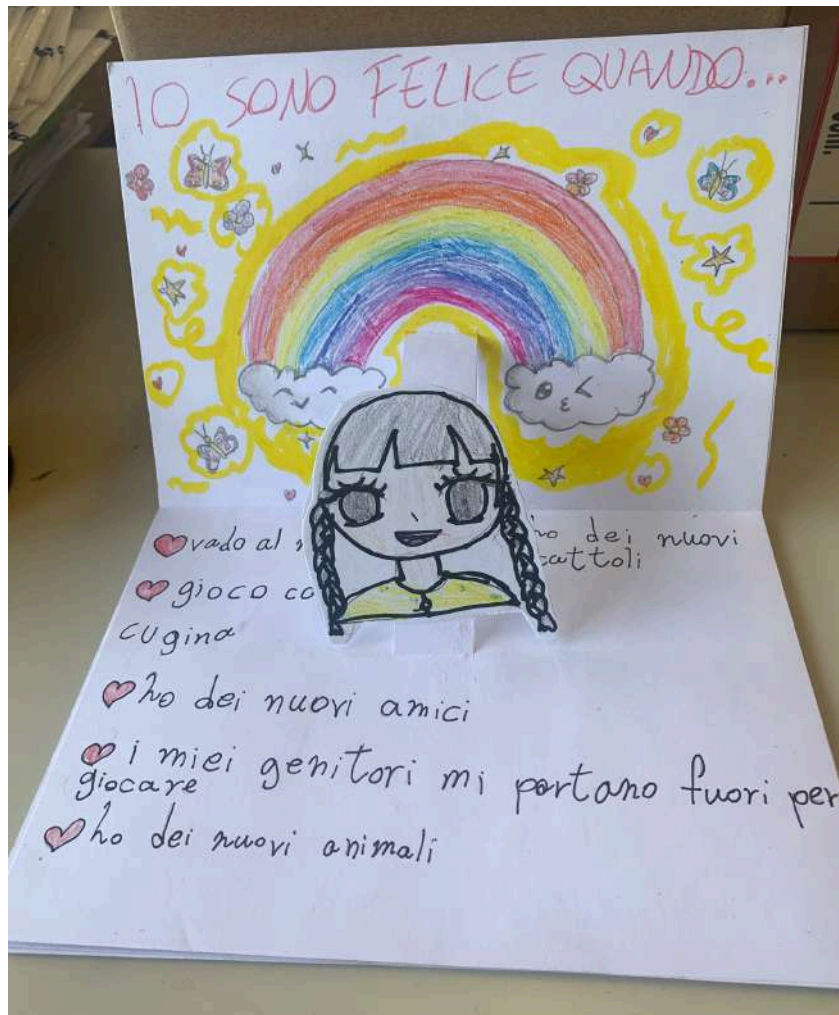 IO SONO FELICE QUANDO...
vado al
ho dei nuovi
gioco
cugina
ho dei nuovi amici
i miei genitori mi portano fuori per
giocare
ho dei nuovi animali